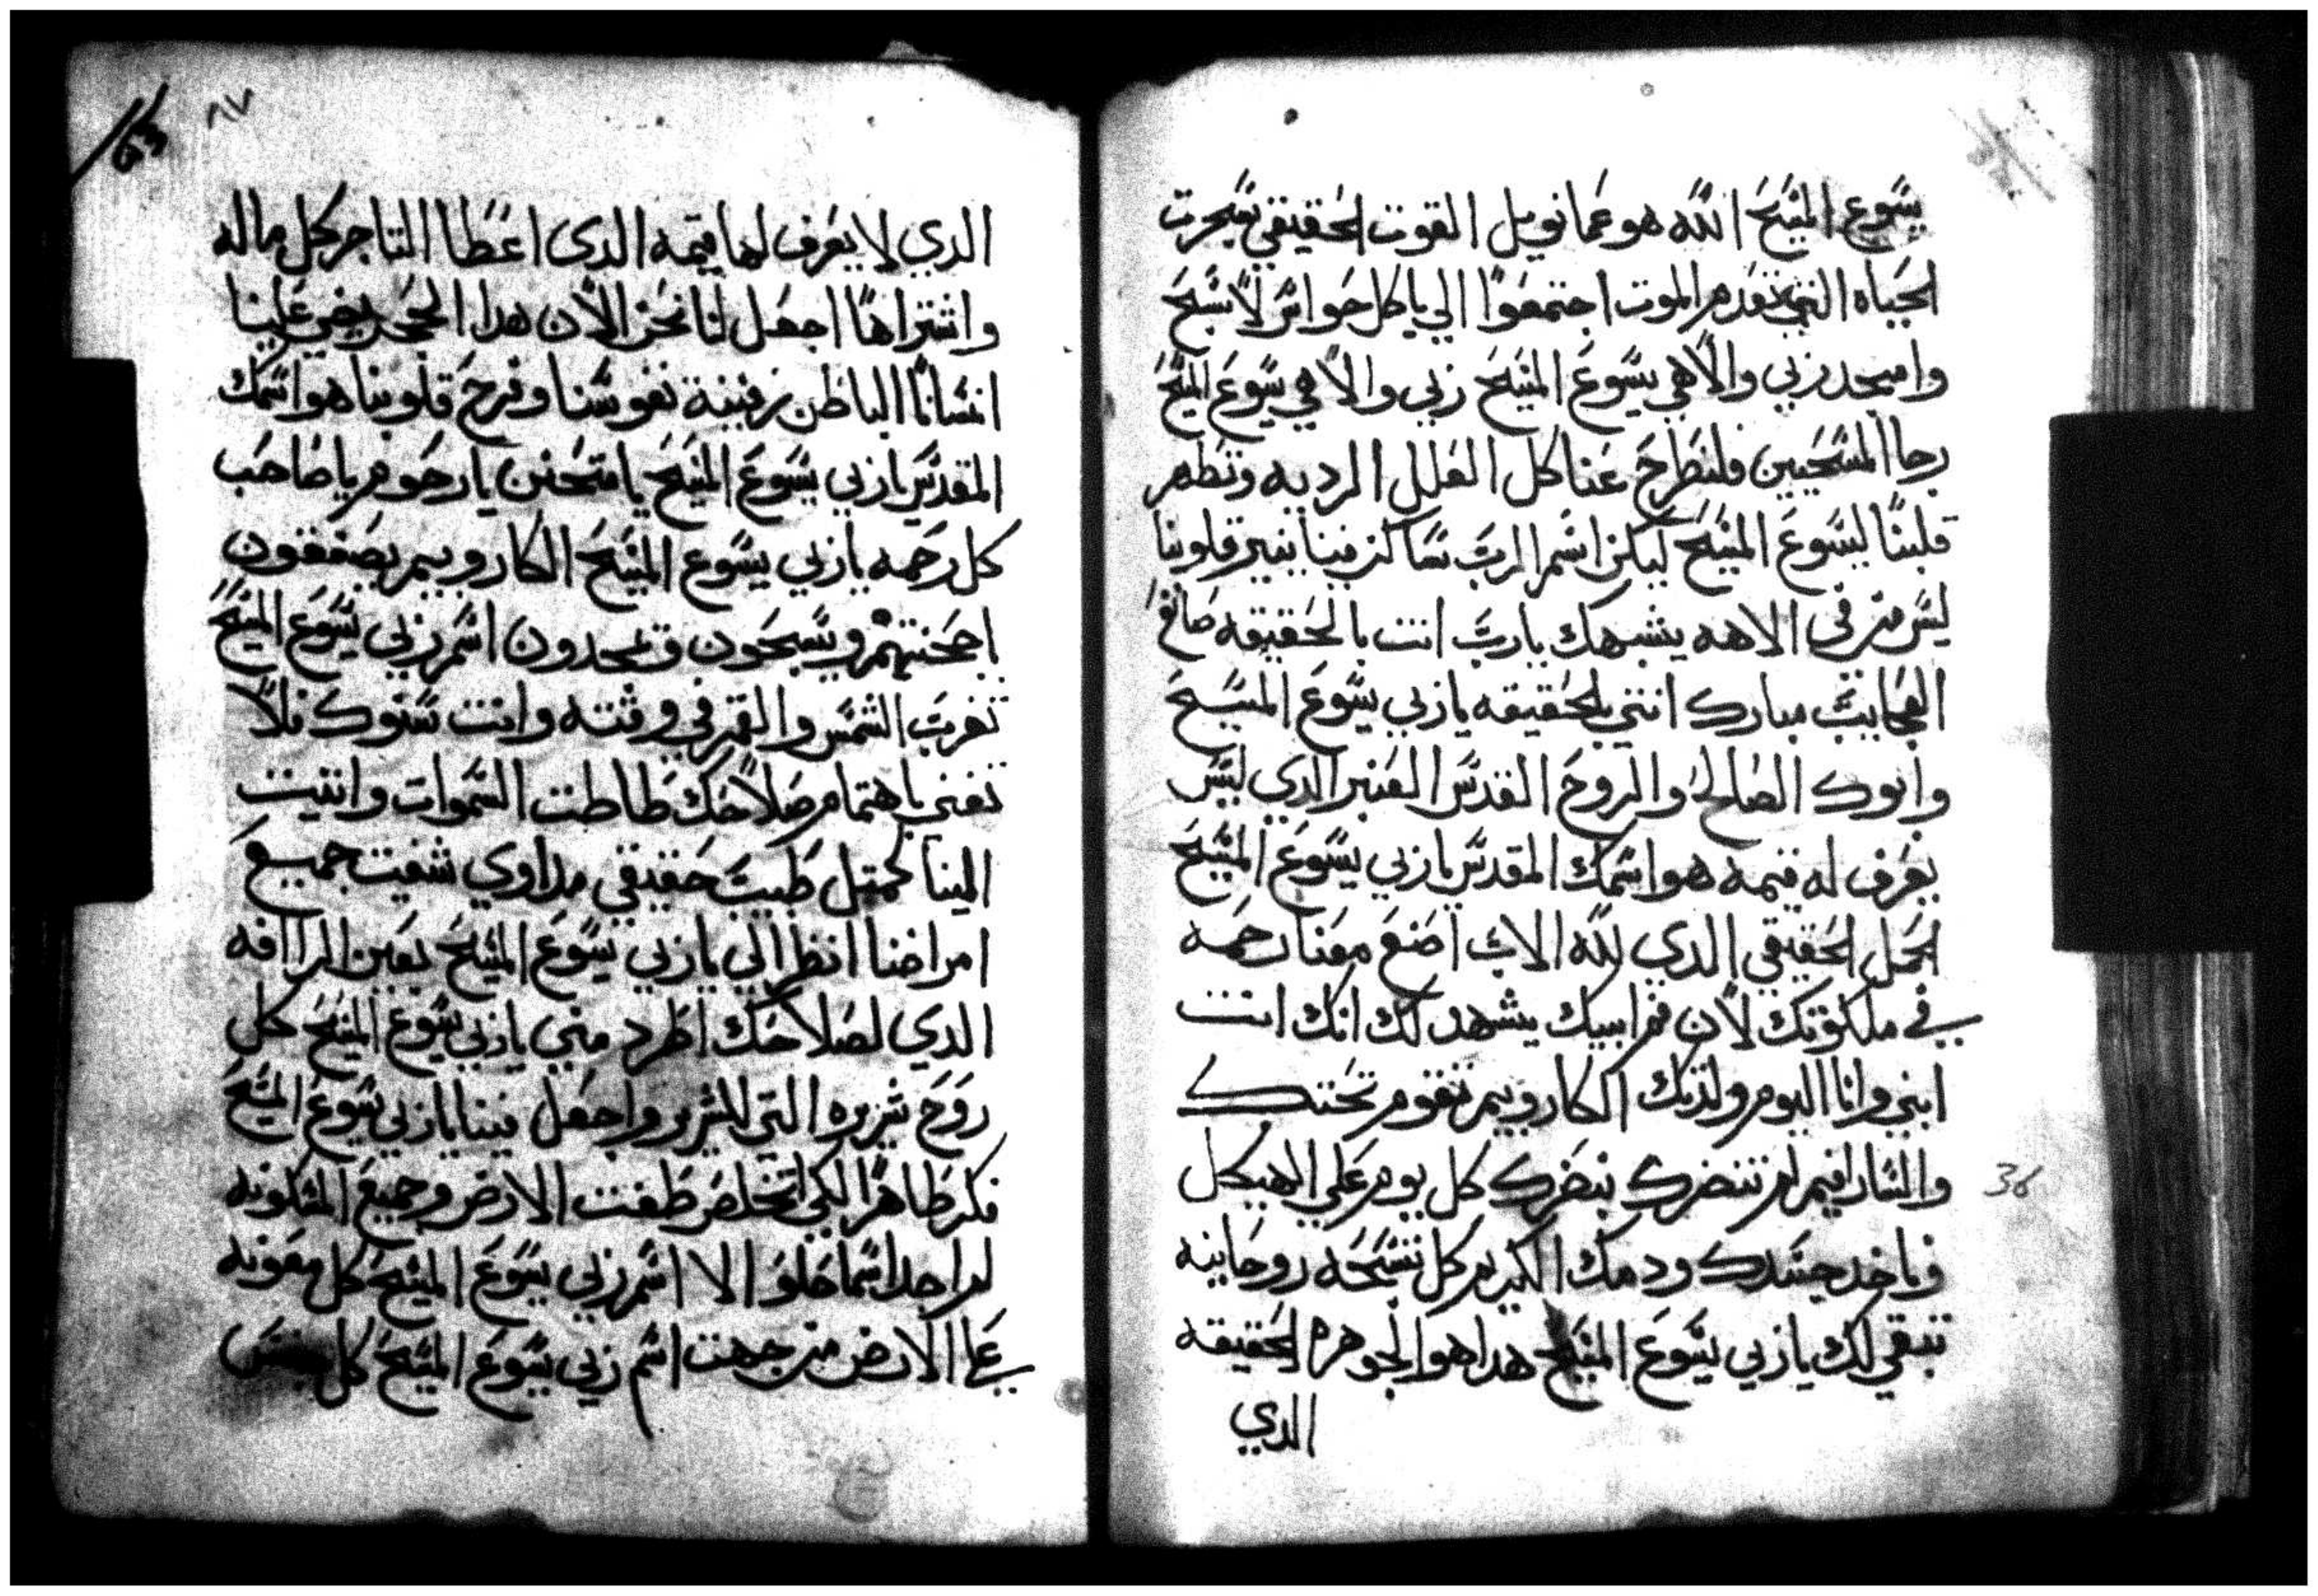 يسوع المسيح الله هو عمانويل القوت الحقيقي شجرت
الحياه التي تقدم الموت اجتمعوا الي يا كل حواس لاسبح
وامجد ربي والاهي يسوع المسيح ربي والاهي يسوع المسيح
رجا المسيحيين فلنطرح عنا كل العلل الرديه ونطهر
قلبنا ليسوع المسيح ليكن اسم الرب ساكن فينا ينير قلوبنا
ليس من في الالهه يشبهك يارب انت بالحقيقه صانع
العجايب مبارك انتي بالحقيقه ياربي يسوع المسيح
وابوك الصالح والروح القدس العنبر الدي ليس
يعرف له قيمه هو اسمك المقدس ياربي يسوع المسيح
الحمل الحقيقي الدي لله الاب اصنع معنا رحمه
في ملكوتك لان فم ابيك يشهد لك انك انت
ابني وانا اليوم ولدتك الكاروبيم تقوم تحتك
والسارافيم لم تنضرك ننضرك كل يوم علي الهيكل
وناخد جسدك ودمك الكريم كل تسبحه روحانيه
تبقي لك ياربي يسوع المسيح هدا هو الجوهره الحقيقه
الدي
٨٧
الدي لا يعرف لها قيمه الدي اعطا التاجر كل ماله
واشتراها اجعل لنا نحن الان هدا الحجر يضي علينا
انساننا الباطن زفينة نفوسنا وفرح قلوبنا هو اسمك
المقدس ياربي يسوع المسيح يا متحنن يا رحوم يا صاحب
كل رحمه ياربي يسوع المسيح الكاروبيم يصفقون
باجحنتهم ويسبحون ويمجدون اسم ربي يسوع المسيح
تغرب الشمس والقمر في وقته وانت سنوك فلا
تفني باهتمام صلاحك طاطت السموات واتيت
الينا كمتل طبيب حقيقي مداوي شفيت جميع
امراضنا انظر الي ياربي يسوع المسيح بعين الراافه
الدي لصلاحك اطرد مني ياربي يسوع المسيح كل
روح شريره التي للشرير واجعل فينا ياربي يسوع المسيح
فكر طاهرا لكي نخلص طفت الارض وجميع المسكونه
لم اجد اسما حلوا الا اسم ربي يسوع المسيح كل معونه
علي الارض من جهت اسم ربي يسوع المسيح كل
36